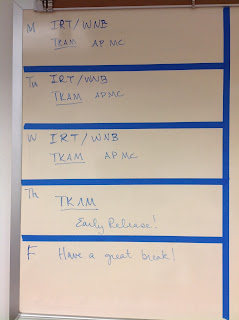 M IRT/WNB
TKAM AP MC
Tu IRT/WNB
TKAM AP MC
W IRT/WNB
TKAM AP MC
Th TKAM
Early Release!
F Have a great break!